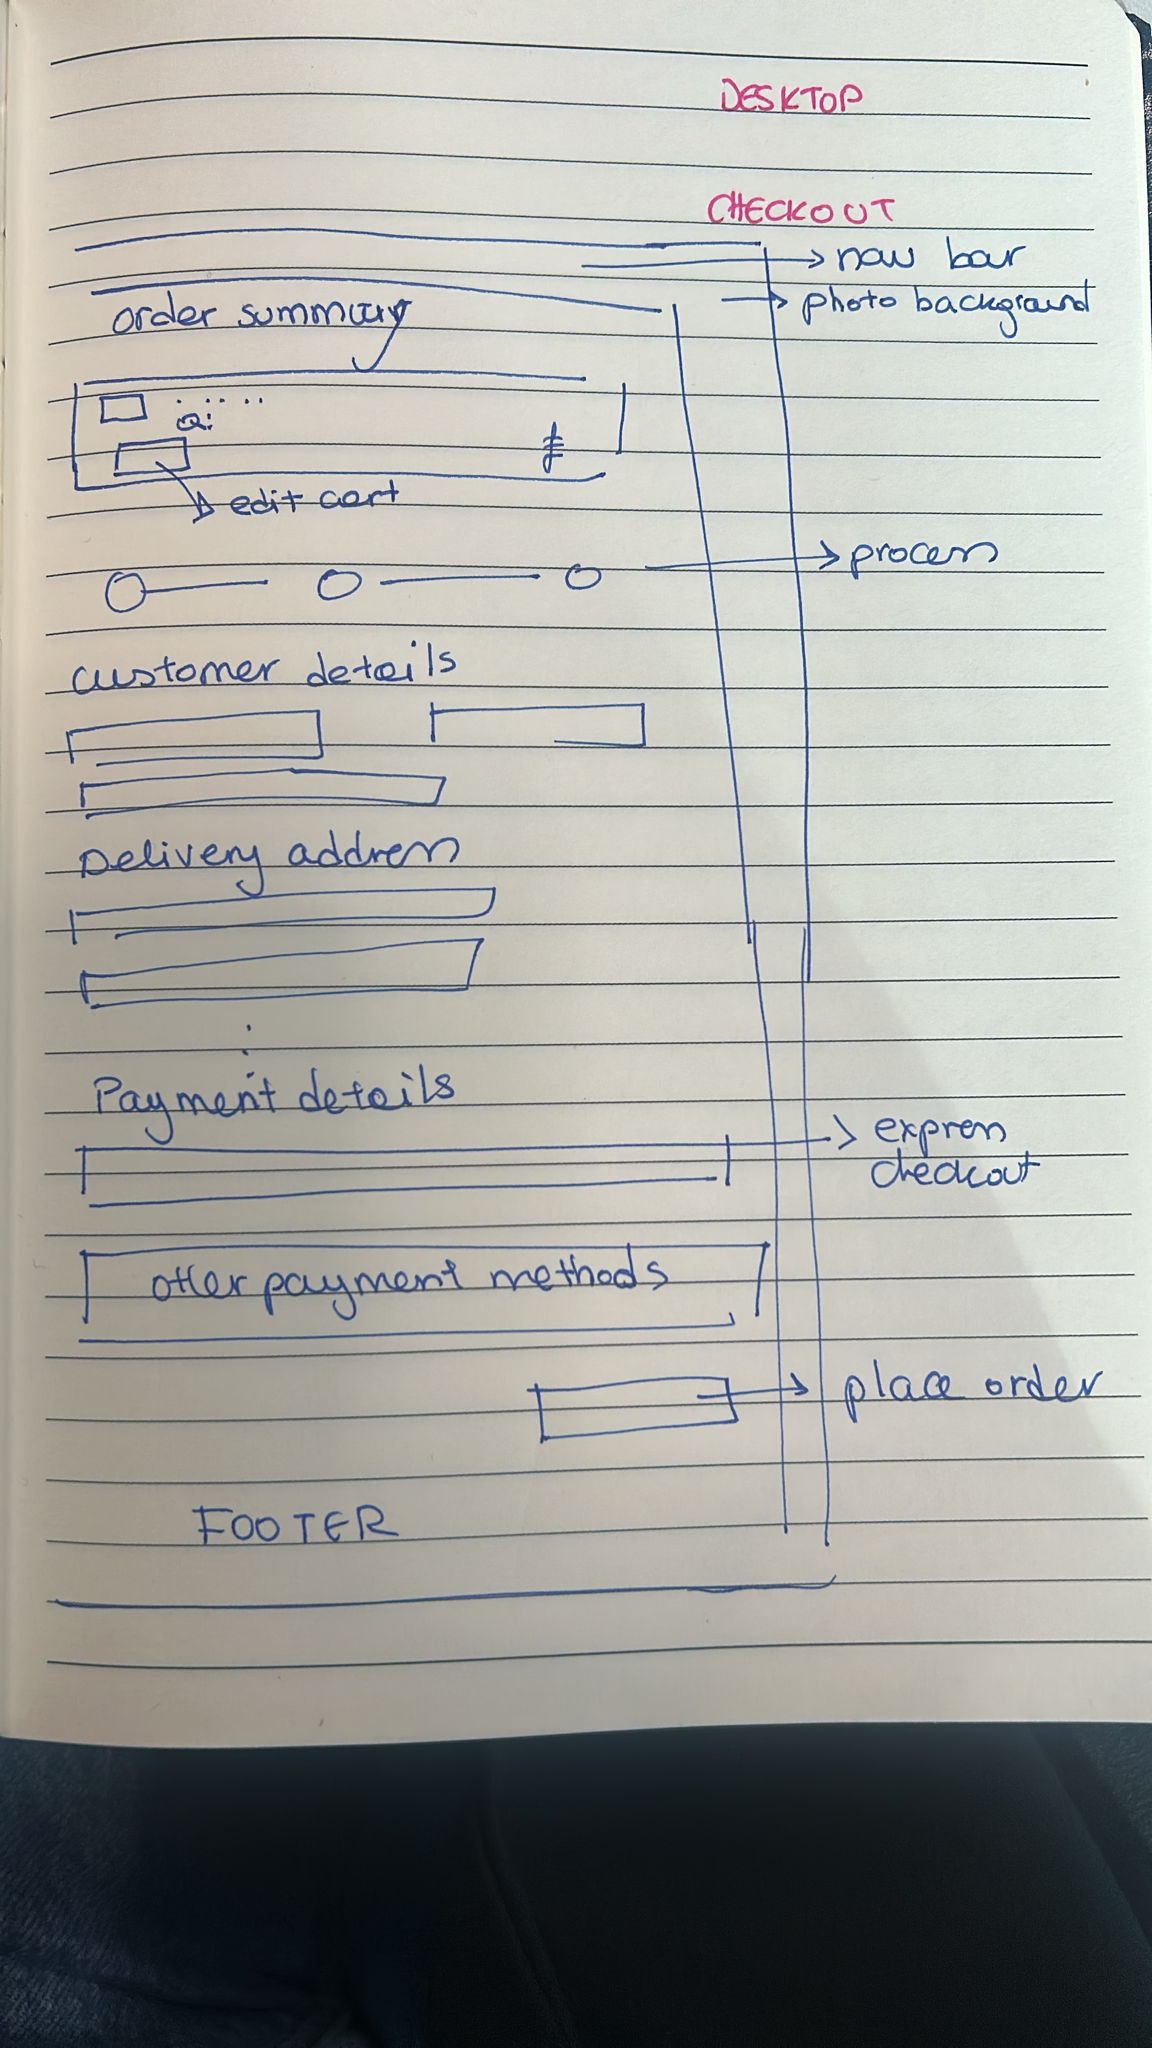 DESKTOP
CHECKOUT
nav bar
photo background
order summary
Q:
edit cart
process
customer details
Delivery address
Payment details
express
checkout
other payment methods
place order
FOOTER